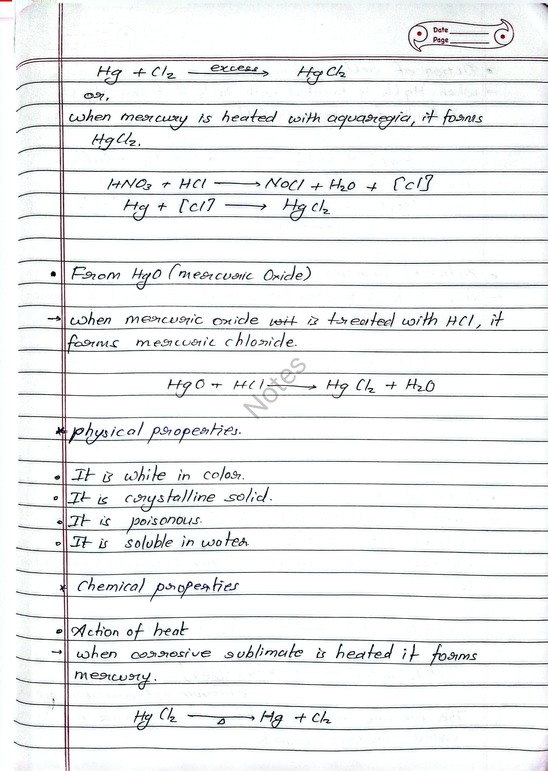 Date
Page
Hg + Cl2 —excess→ HgCl2
or,
when mercury is heated with aquaregia, it forms
HgCl2.
HNO3 + HCl ⟶ NOCl + H2O + [cl]
Hg + [cl] ⟶ HgCl2
• From HgO (mercuric Oxide)
→ when mercuric oxide is treated with HCl, it
forms mercuric chloride.
HgO + HCl ⟶ HgCl2 + H2O
Notes
* physical properties.
• It is white in color.
• It is crystalline solid.
• It is poisonous.
• It is soluble in water
* Chemical properties
• Action of heat
→ when corrosive sublimate is heated it forms
mercury.
HgCl2 —Δ→ Hg + Cl2